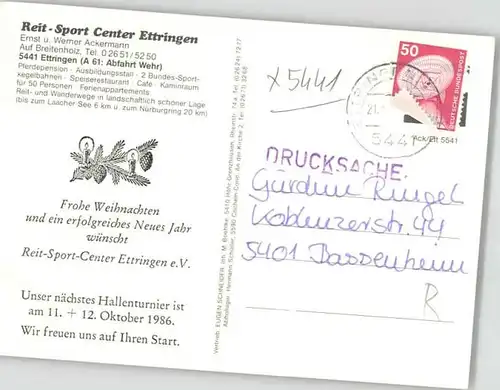 Reit-Sport Center Ettringen
Ernst u. Werner Ackermann
Auf Breitenholz, Tel. 0 26 51 / 52 50
5441 Ettringen (A 61: Abfahrt Wehr)
Pferdepension · Ausbildungsstall · 2 Bundes-Sport-
kegelbahnen · Speiserestaurant · Café · Kaminraum
für 50 Personen · Ferienappartements
Reit- und Wanderwege in landschaftlich schöner Lage
(bis zum Laacher See 6 km u. zum Nürburgring 20 km)
Frohe Weihnachten
und ein erfolgreiches Neues Jahr
wünscht
Reit-Sport-Center Ettringen e.V.
Unser nächstes Hallenturnier ist
am 11. + 12. Oktober 1986.
Wir freuen uns auf Ihren Start.
Vertrieb: EUGEN SCHNEIDER
x 5441
50
DEUTSCHE BUNDESPOST
21.
5441
Ack/Ett 5541
DRUCKSACHE
Ringel
Koblenzerstr. 44
5401 Bassenheim
R